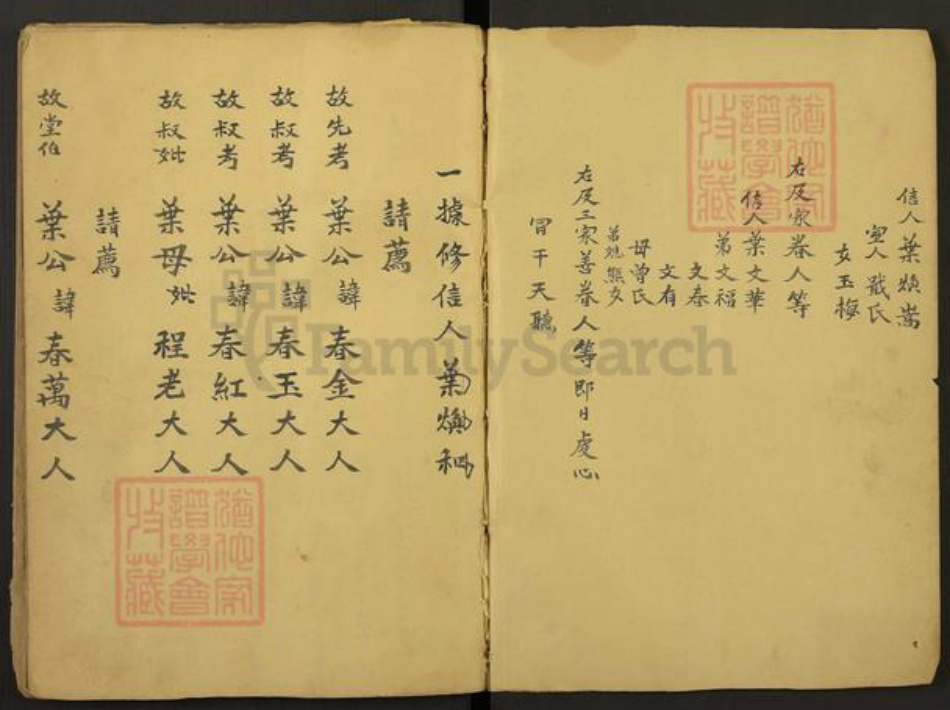 信人 葉煥嵩
室人 戴氏
女玉梅
右及家眷人等
信人葉文華
弟文福
文春
文有
母曾氏
右及三家善眷人等即日虔心
冒干天聽
一據修信人葉煥和
請薦
故先考 葉公諱春金大人
故叔考 葉公諱春玉大人
故叔考 葉公諱春紅大人
故叔妣 葉母妣程老大人
請薦
故堂伯 葉公諱春萬大人
譜學會
收藏
譜學會
收藏
FamilySearch